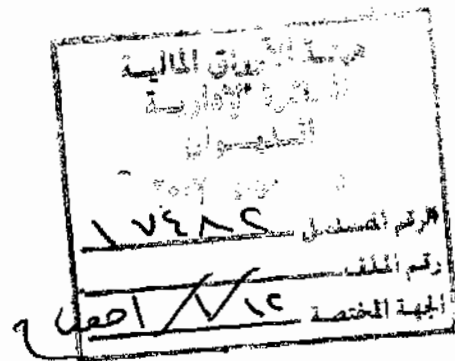 هيئة الأوراق المالية
الدائرة الإدارية
الديوان
الرقم المتسلسل ١٧٤٨٢
رقم الملف
الجهة المختصة